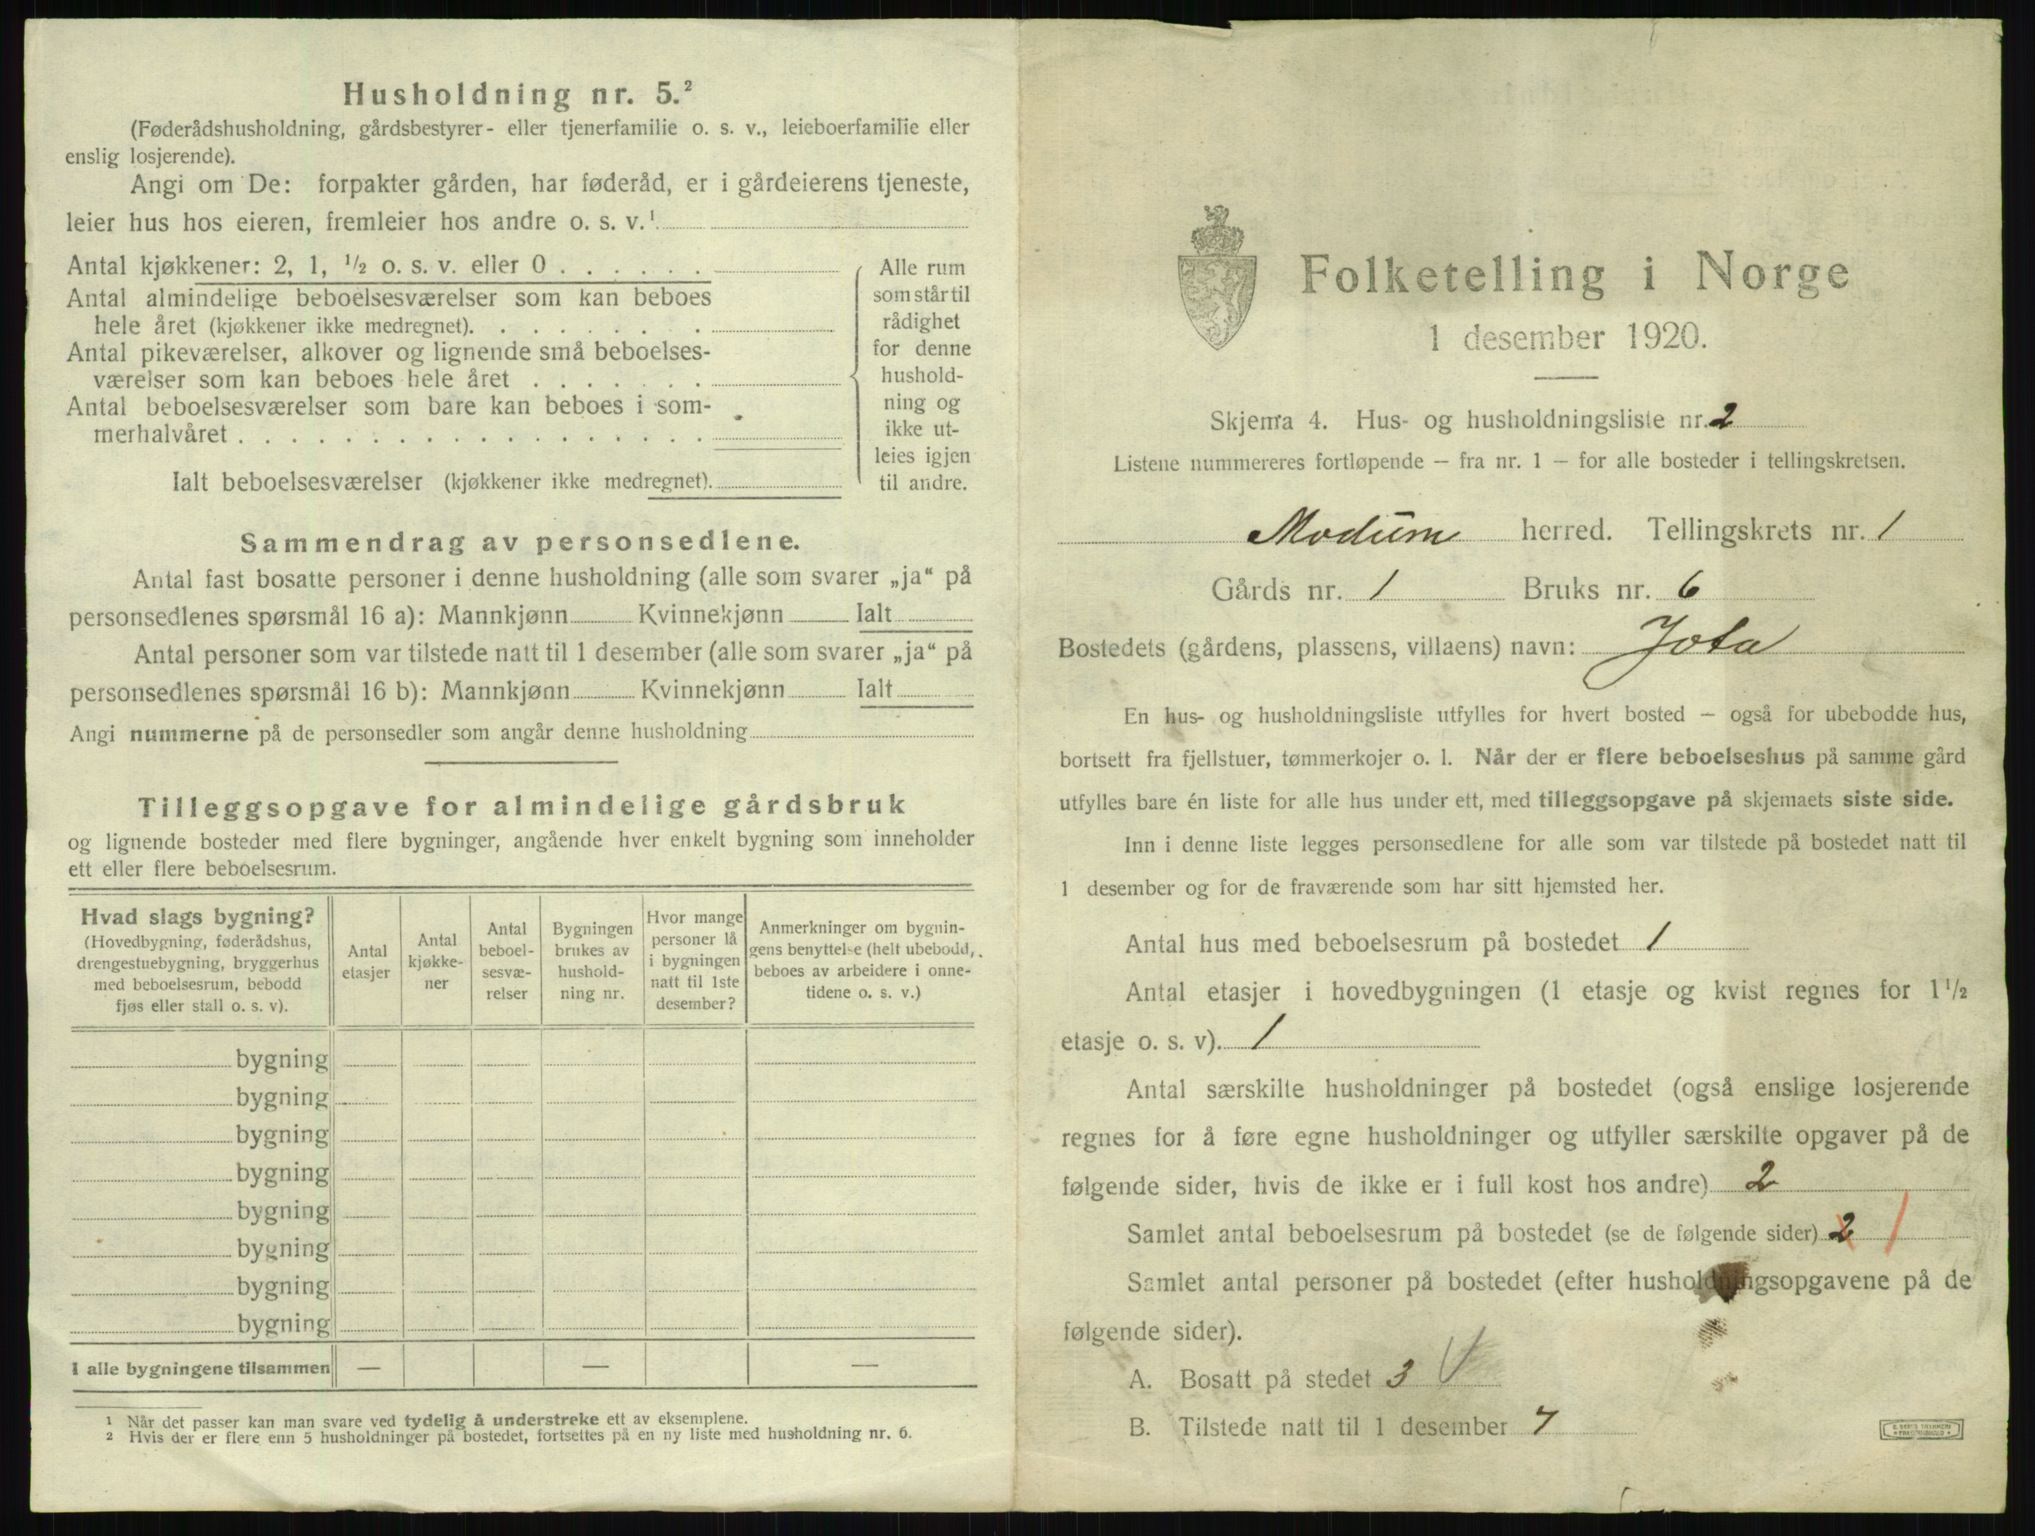 Husholdning nr. 5.²
(Føderådshusholdning, gårdsbestyrer- eller tjenerfamilie o. s. v., leieboerfamilie eller
enslig losjerende).
Angi om De: forpakter gården, har føderåd, er i gårdeierens tjeneste,
leier hus hos eieren, fremleier hos andre o. s. v.¹
Antal kjøkkener: 2, 1, ½ o. s. v. eller 0 . . . . . .
Antal almindelige beboelsesværelser som kan beboes
hele året (kjøkkener ikke medregnet). . . . . . . .
Antal pikeværelser, alkover og lignende små beboelses-
værelser som kan beboes hele året . . . . . . .
Antal beboelsesværelser som bare kan beboes i som-
merhalvåret . . . . . . . . . . . . . . . . . .
Ialt beboelsesværelser (kjøkkener ikke medregnet).
Alle rum
som står til
rådighet
for denne
hushold-
ning og
ikke ut-
leies igjen
til andre.
Sammendrag av personsedlene.
Antal fast bosatte personer i denne husholdning (alle som svarer „ja“ på
personsedlenes spørsmål 16 a): Mannkjønn Kvinnekjønn Ialt
Antal personer som var tilstede natt til 1 desember (alle som svarer „ja“ på
personsedlenes spørsmål 16 b): Mannkjønn Kvinnekjønn Ialt
Angi nummerne på de personsedler som angår denne husholdning
Tilleggsopgave for almindelige gårdsbruk
og lignende bosteder med flere bygninger, angående hver enkelt bygning som inneholder
ett eller flere beboelsesrum.
Hvad slags bygning?
(Hovedbygning, føderådshus,
drengestuebygning, bryggerhus
med beboelsesrum, bebodd
fjøs eller stall o. s. v).
Antal
etasjer
Antal
kjøkke-
ner
Antal
beboel-
sesvæ-
relser
Bygningen
brukes av
hushold-
ning nr.
Hvor mange
personer lå
i bygningen
natt til 1ste
desember?
Anmerkninger om bygnin-
gens benyttelse (helt ubebodd,
beboes av arbeidere i onne-
tidene o. s. v.)
bygning
bygning
bygning
bygning
bygning
bygning
bygning
bygning
I alle bygningene tilsammen — — —
1 Når det passer kan man svare ved tydelig å understreke ett av eksemplene.
2 Hvis der er flere enn 5 husholdninger på bostedet, fortsettes på en ny liste med husholdning nr. 6.
Folketelling i Norge
1 desember 1920.
Skjema 4. Hus- og husholdningsliste nr. 2
Listene nummereres fortløpende – fra nr. 1 – for alle bosteder i tellingskretsen.
Modum herred. Tellingskrets nr. 1
Gårds nr. 1 Bruks nr. 6
Bostedets (gårdens, plassens, villaens) navn: Jota
En hus- og husholdningsliste utfylles for hvert bosted – også for ubebodde hus,
bortsett fra fjellstuer, tømmerkojer o. l. Når der er flere beboelseshus på samme gård
utfylles bare én liste for alle hus under ett, med tilleggsopgave på skjemaets siste side.
Inn i denne liste legges personsedlene for alle som var tilstede på bostedet natt til
1 desember og for de fraværende som har sitt hjemsted her.
Antal hus med beboelsesrum på bostedet 1
Antal etasjer i hovedbygningen (1 etasje og kvist regnes for 1½
etasje o. s. v). 1
Antal særskilte husholdninger på bostedet (også enslige losjerende
regnes for å føre egne husholdninger og utfyller særskilte opgaver på de
følgende sider, hvis de ikke er i full kost hos andre) 2
Samlet antal beboelsesrum på bostedet (se de følgende sider) 2 1
Samlet antal personer på bostedet (efter husholdningsopgavene på de
følgende sider).
A. Bosatt på stedet 3
B. Tilstede natt til 1 desember 7